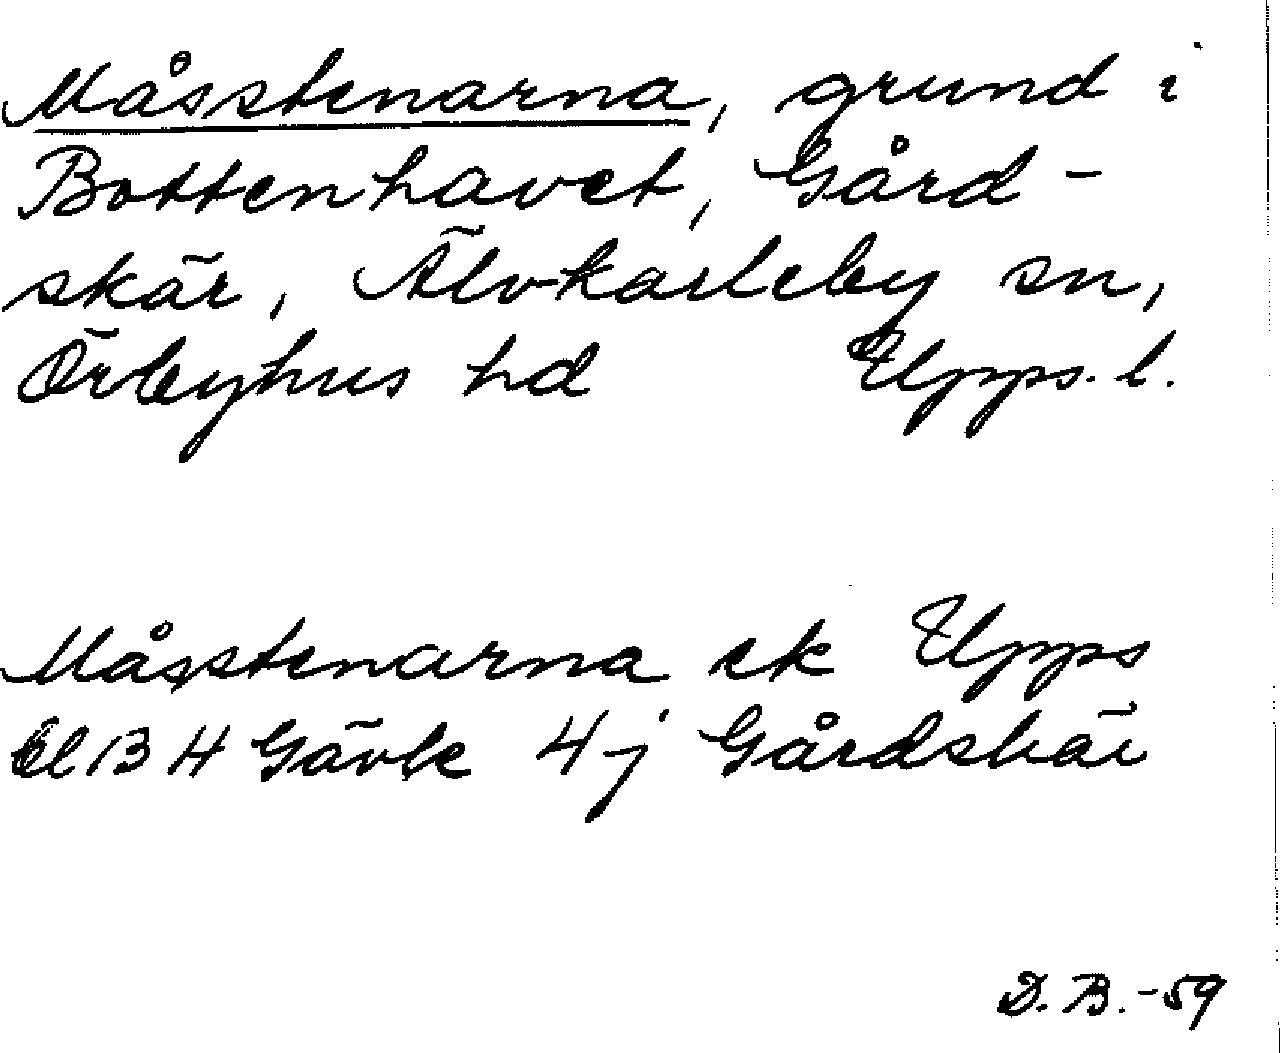 Måsstenarna, grund i
Bottenhavet, Gård-
skär, Älvkarleby sn,
Örbyhus hd Upps. l.
Måsstenarna ek Upps
bl 13 H Gävle 4j Gårdskär
D. B. -59